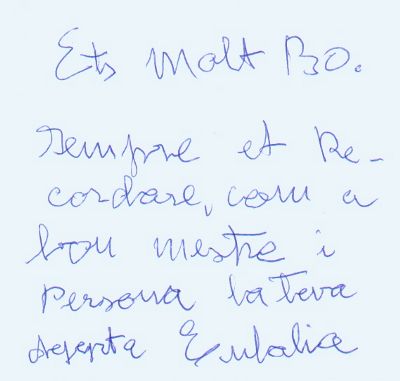 Ets molt BO.
sempre et Re-
cordare, com a
bon mestre i
Persona la Teva
Eulalia